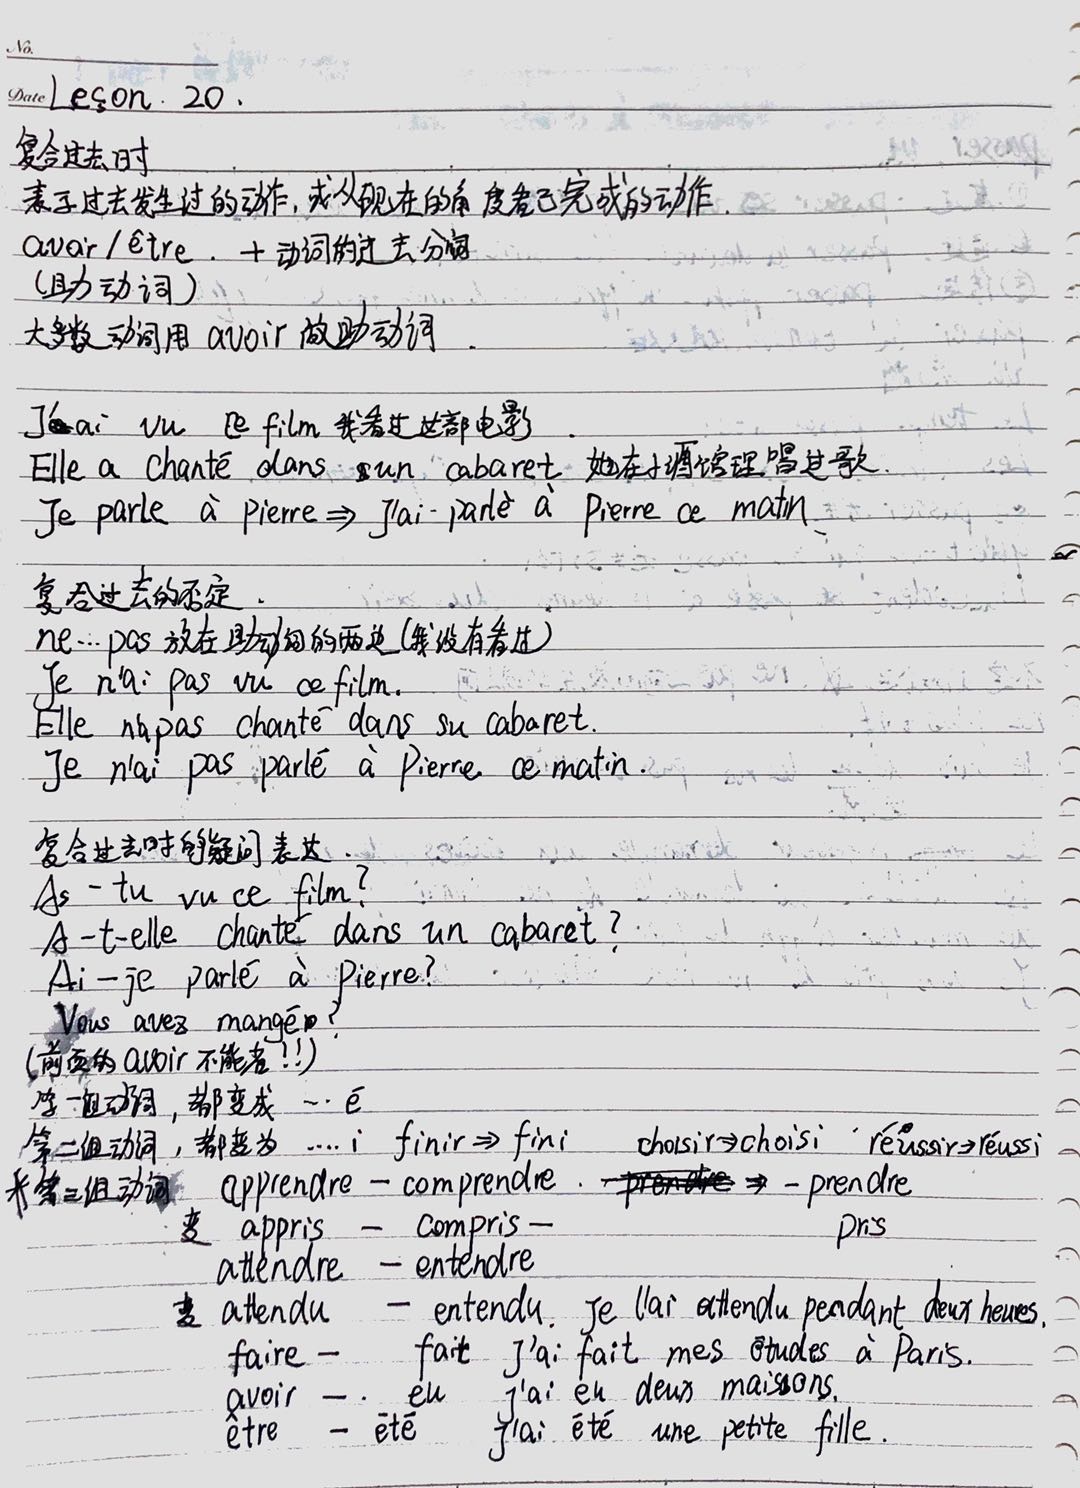 No.
Date Leçon. 20.
复合过去时
表示过去发生过的动作,或从现在的角度看已完成的动作.
avoir/être. +动词的过去分词
(助动词)
大多数动词用 avoir 做助动词.
J'ai vu ce film 我看过这部电影.
Elle a chanté dans un cabaret 她在小酒馆里唱过歌.
Je parle à Pierre ⇒ J'ai parlé à Pierre ce matin.
复合过去的否定.
ne...pas 放在助动词的两边(我没有看过)
Je n'ai pas vu ce film.
Elle n'a pas chanté dans su cabaret.
Je n'ai pas parlé à Pierre ce matin.
复合过去时的疑问表达.
As-tu vu ce film?
A-t-elle chanté dans un cabaret?
Ai-je parlé à Pierre?
Vous avez mangé?
(前面的 avoir 不能省!!)
第一组动词,都变成 ...é
第二组动词,都变为 ....i finir⇒fini choisir→choisi réussir→réussi
第三组动词 apprendre - comprendre. - prendre
变 appris - compris - pris
attendre - entendre
变 attendu - entendu. Je l'ai attendu pendant deux heures.
faire - fait J'ai fait mes études à Paris.
avoir -. eu J'ai eu deux maisons.
être - été J'ai été une petite fille.